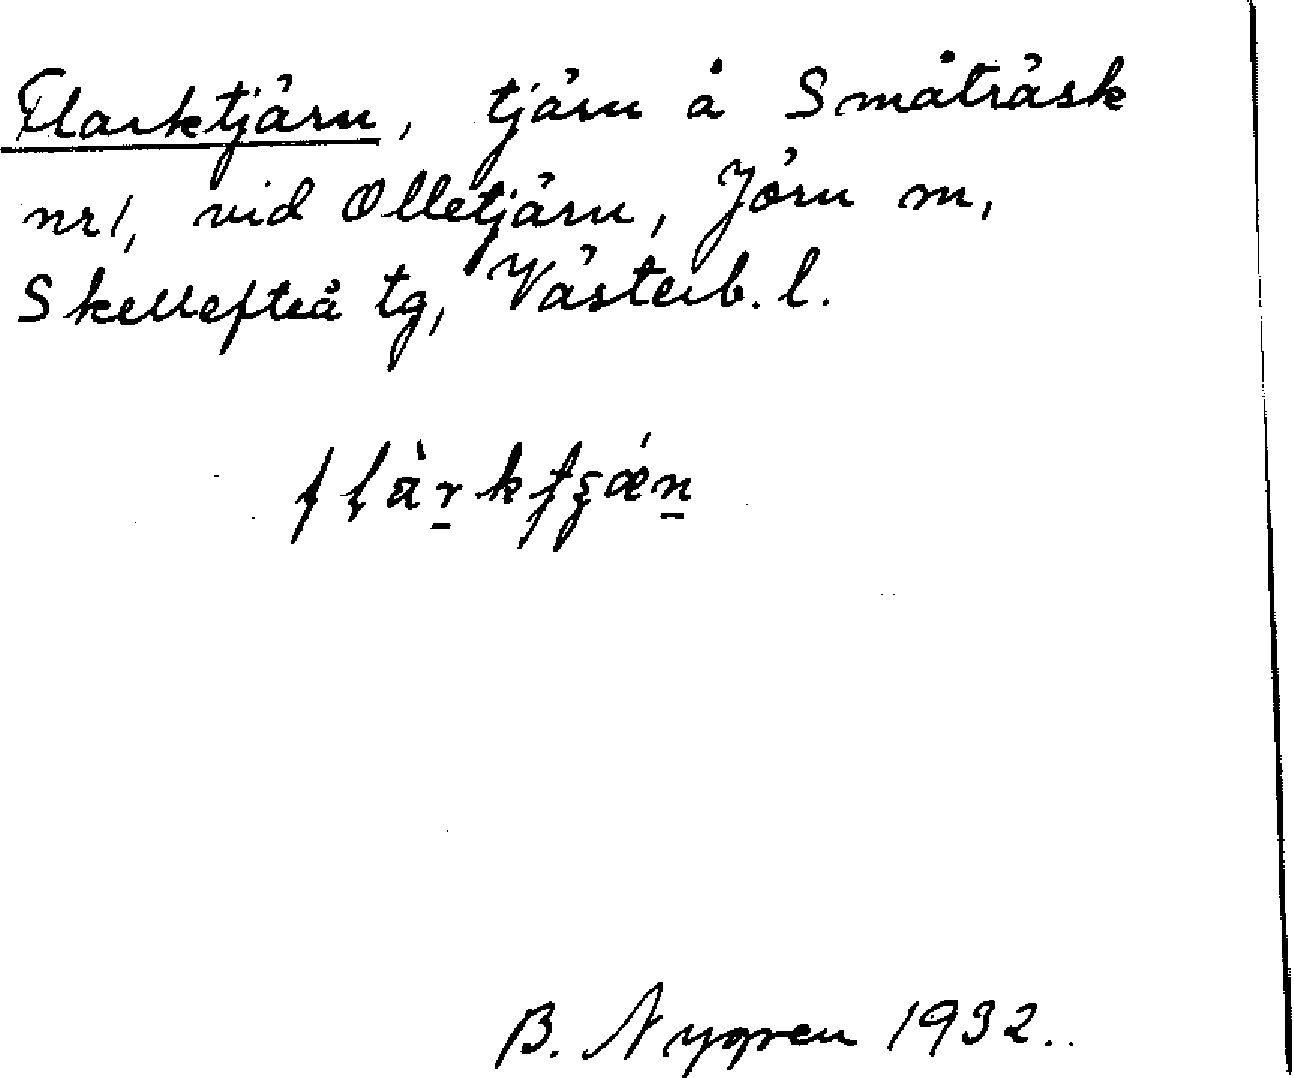 Flarktjärn, tjärn å Småträsk
nr 1, vid Olletjärn, Jörn m,
Skellefteå tg, Västerb. l.
B. Nygren 1932.